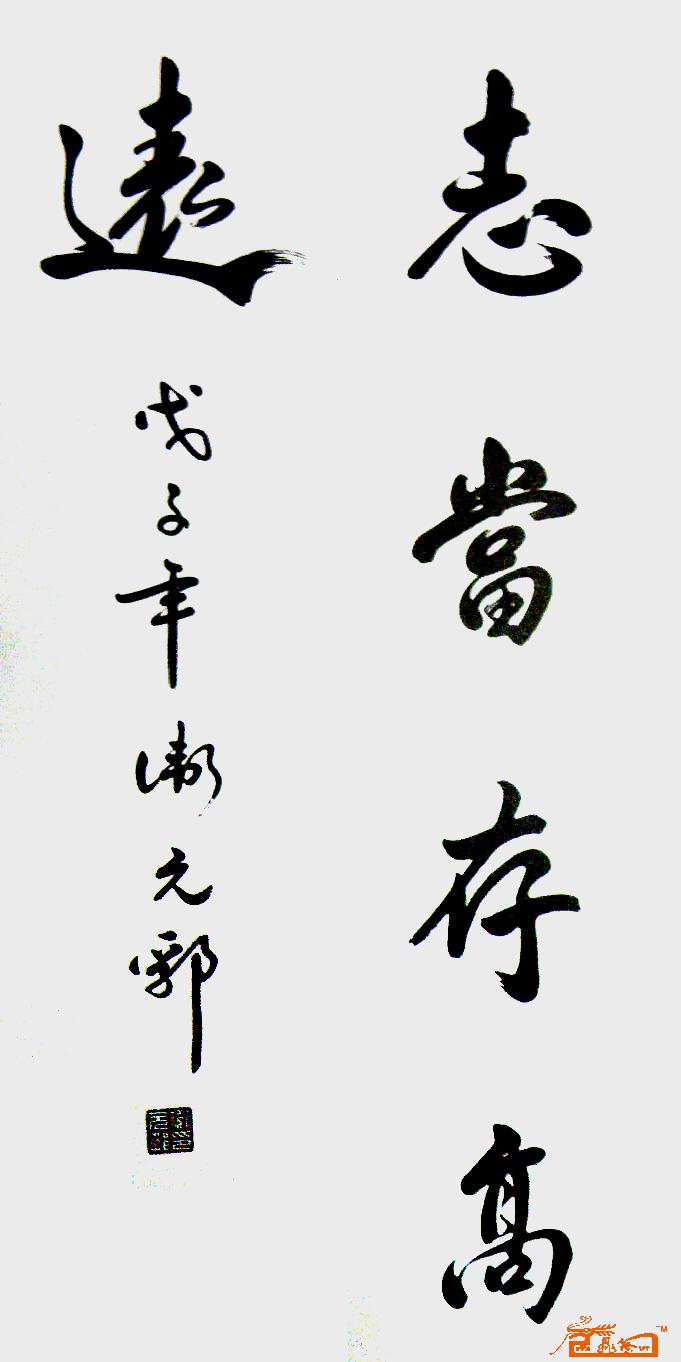 志當存高
遠
戊子年衛元郭